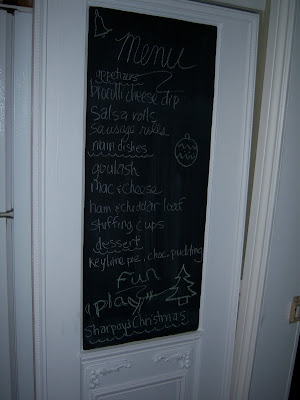 Menu
appetizers
biocolli cheese dip
Salsa rolls
sausage rolls
main dishes
goulash
mac & cheese
ham & cheddar loaf
stuffing cups
dessert
Key lime pie, choc. pudding
Fun
"play"
Sharpay's Christmas